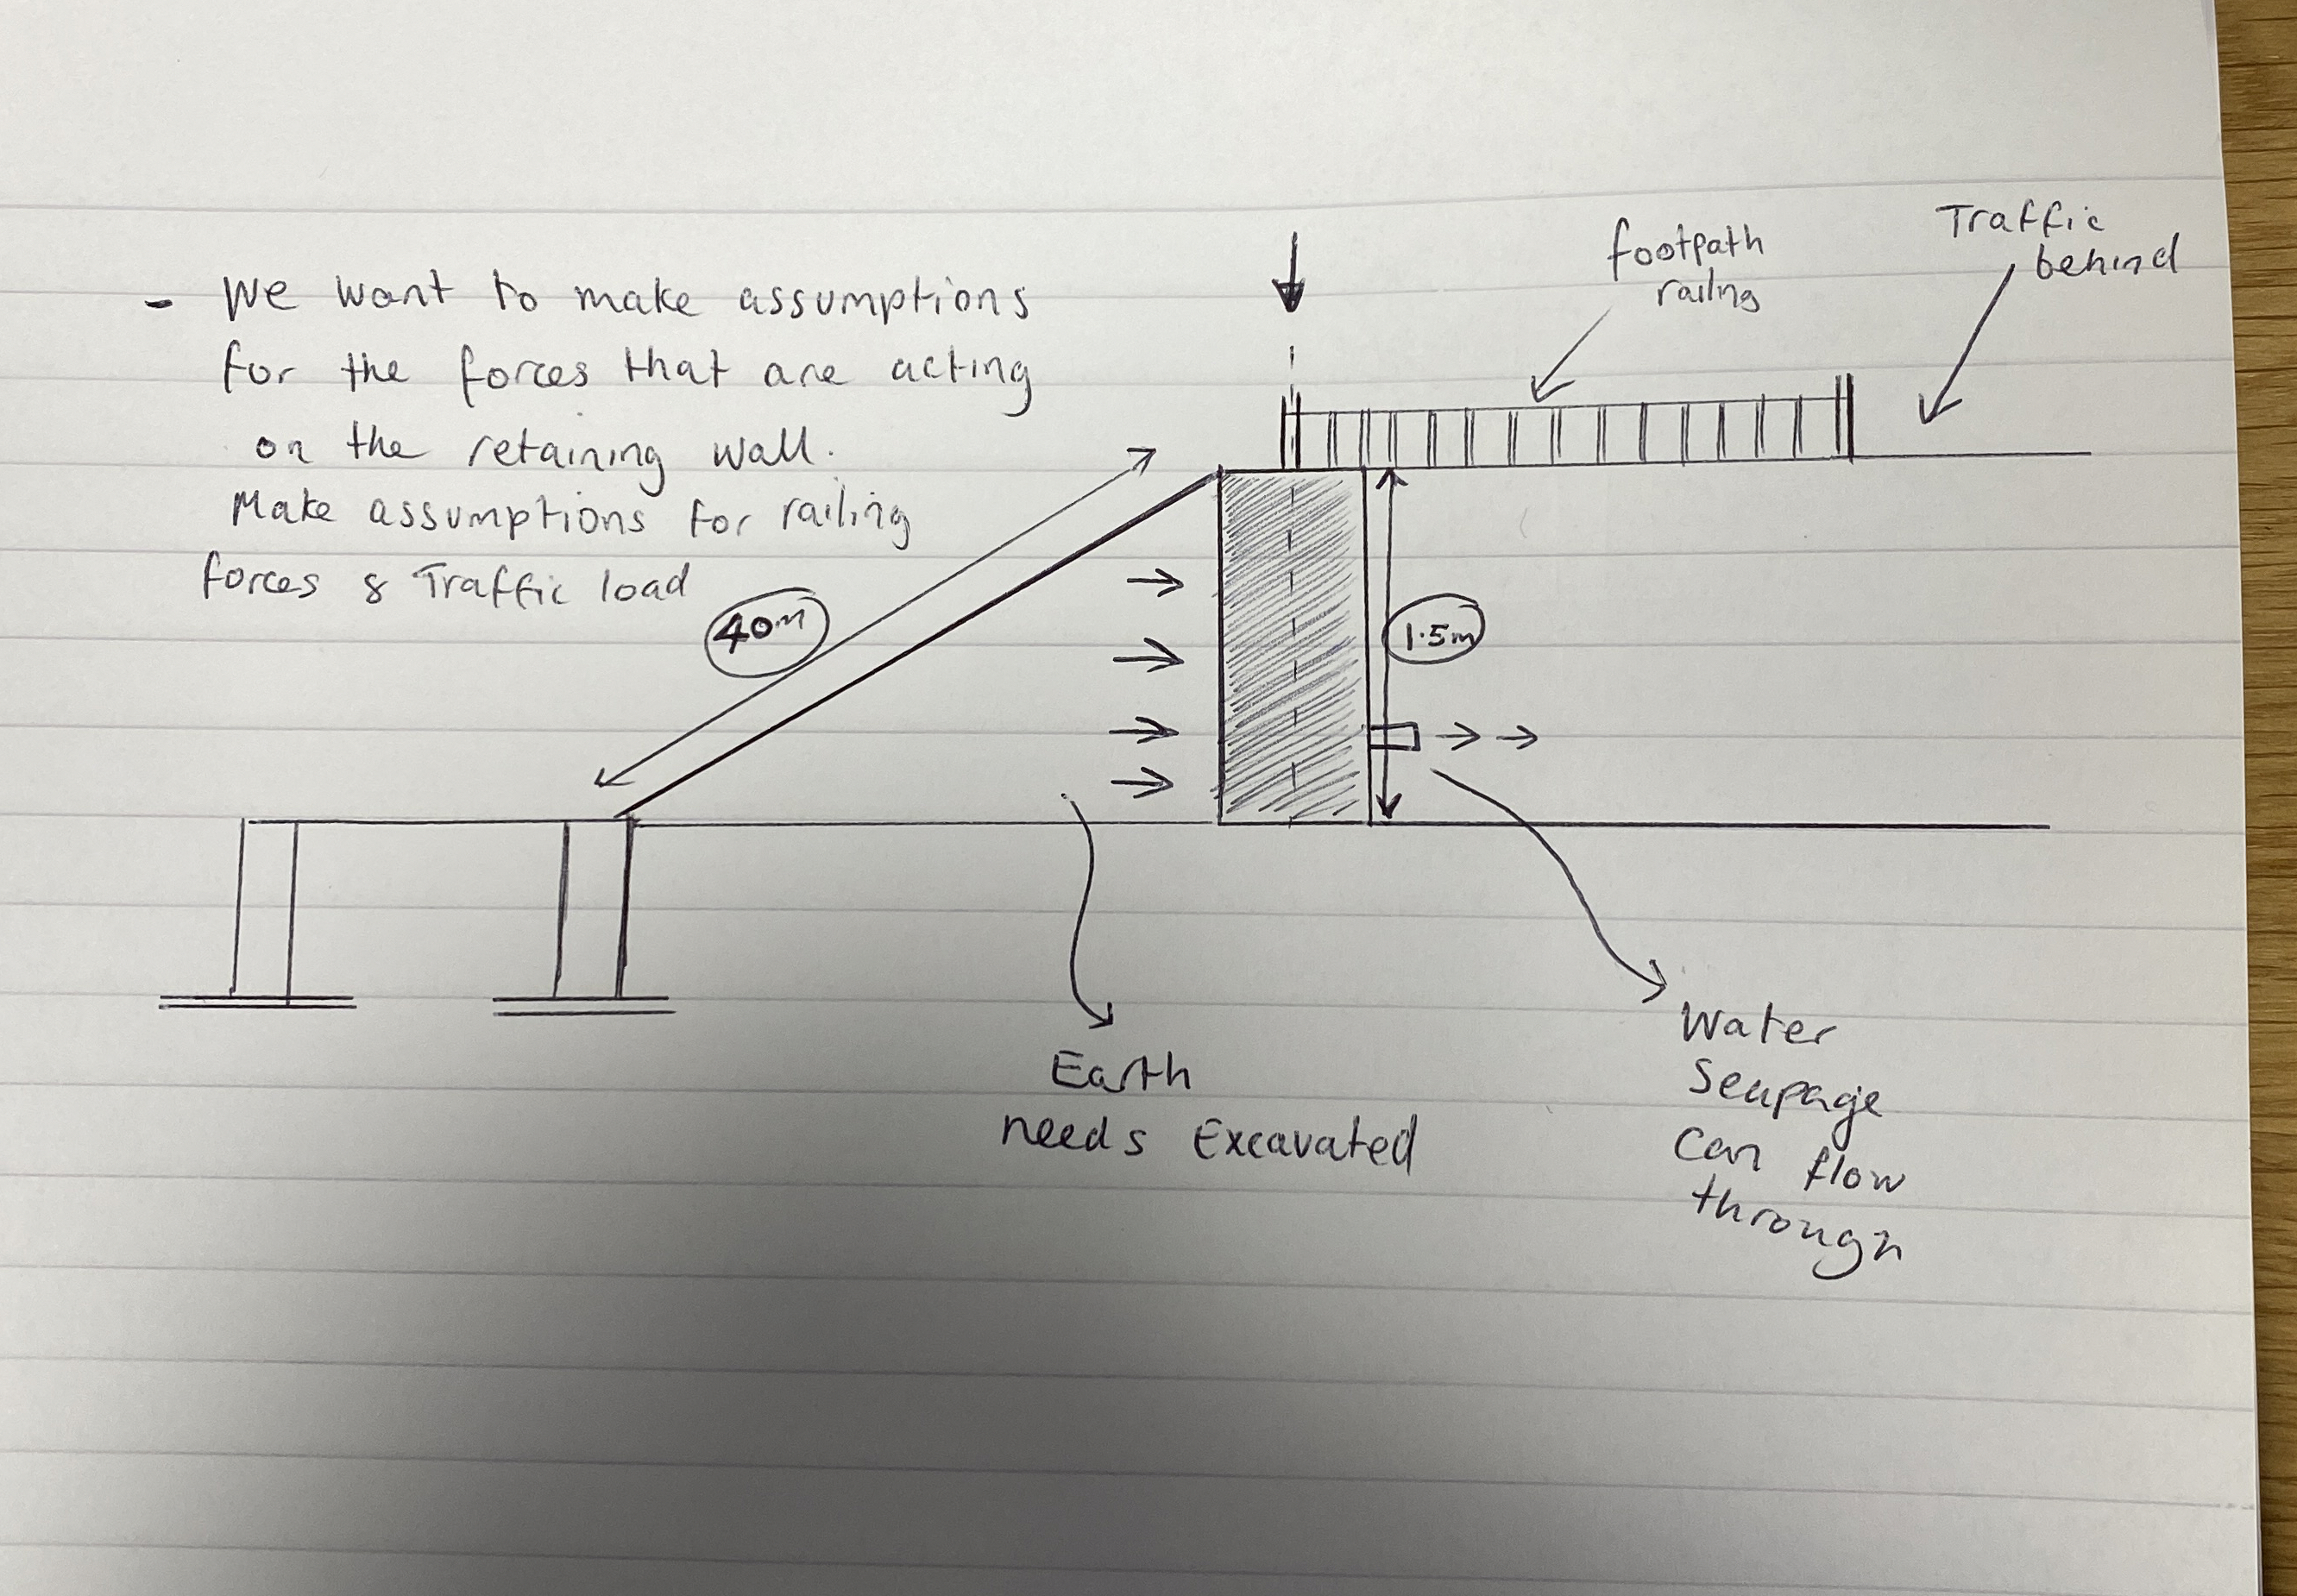 - We want to make assumptions
for the forces that are acting
on the retaining wall.
Make assumptions for railing
forces & Traffic load
footpath
railing
Traffic
behind
40m
1.5m
Earth
needs Excavated
Water
Seapage
Can flow
through